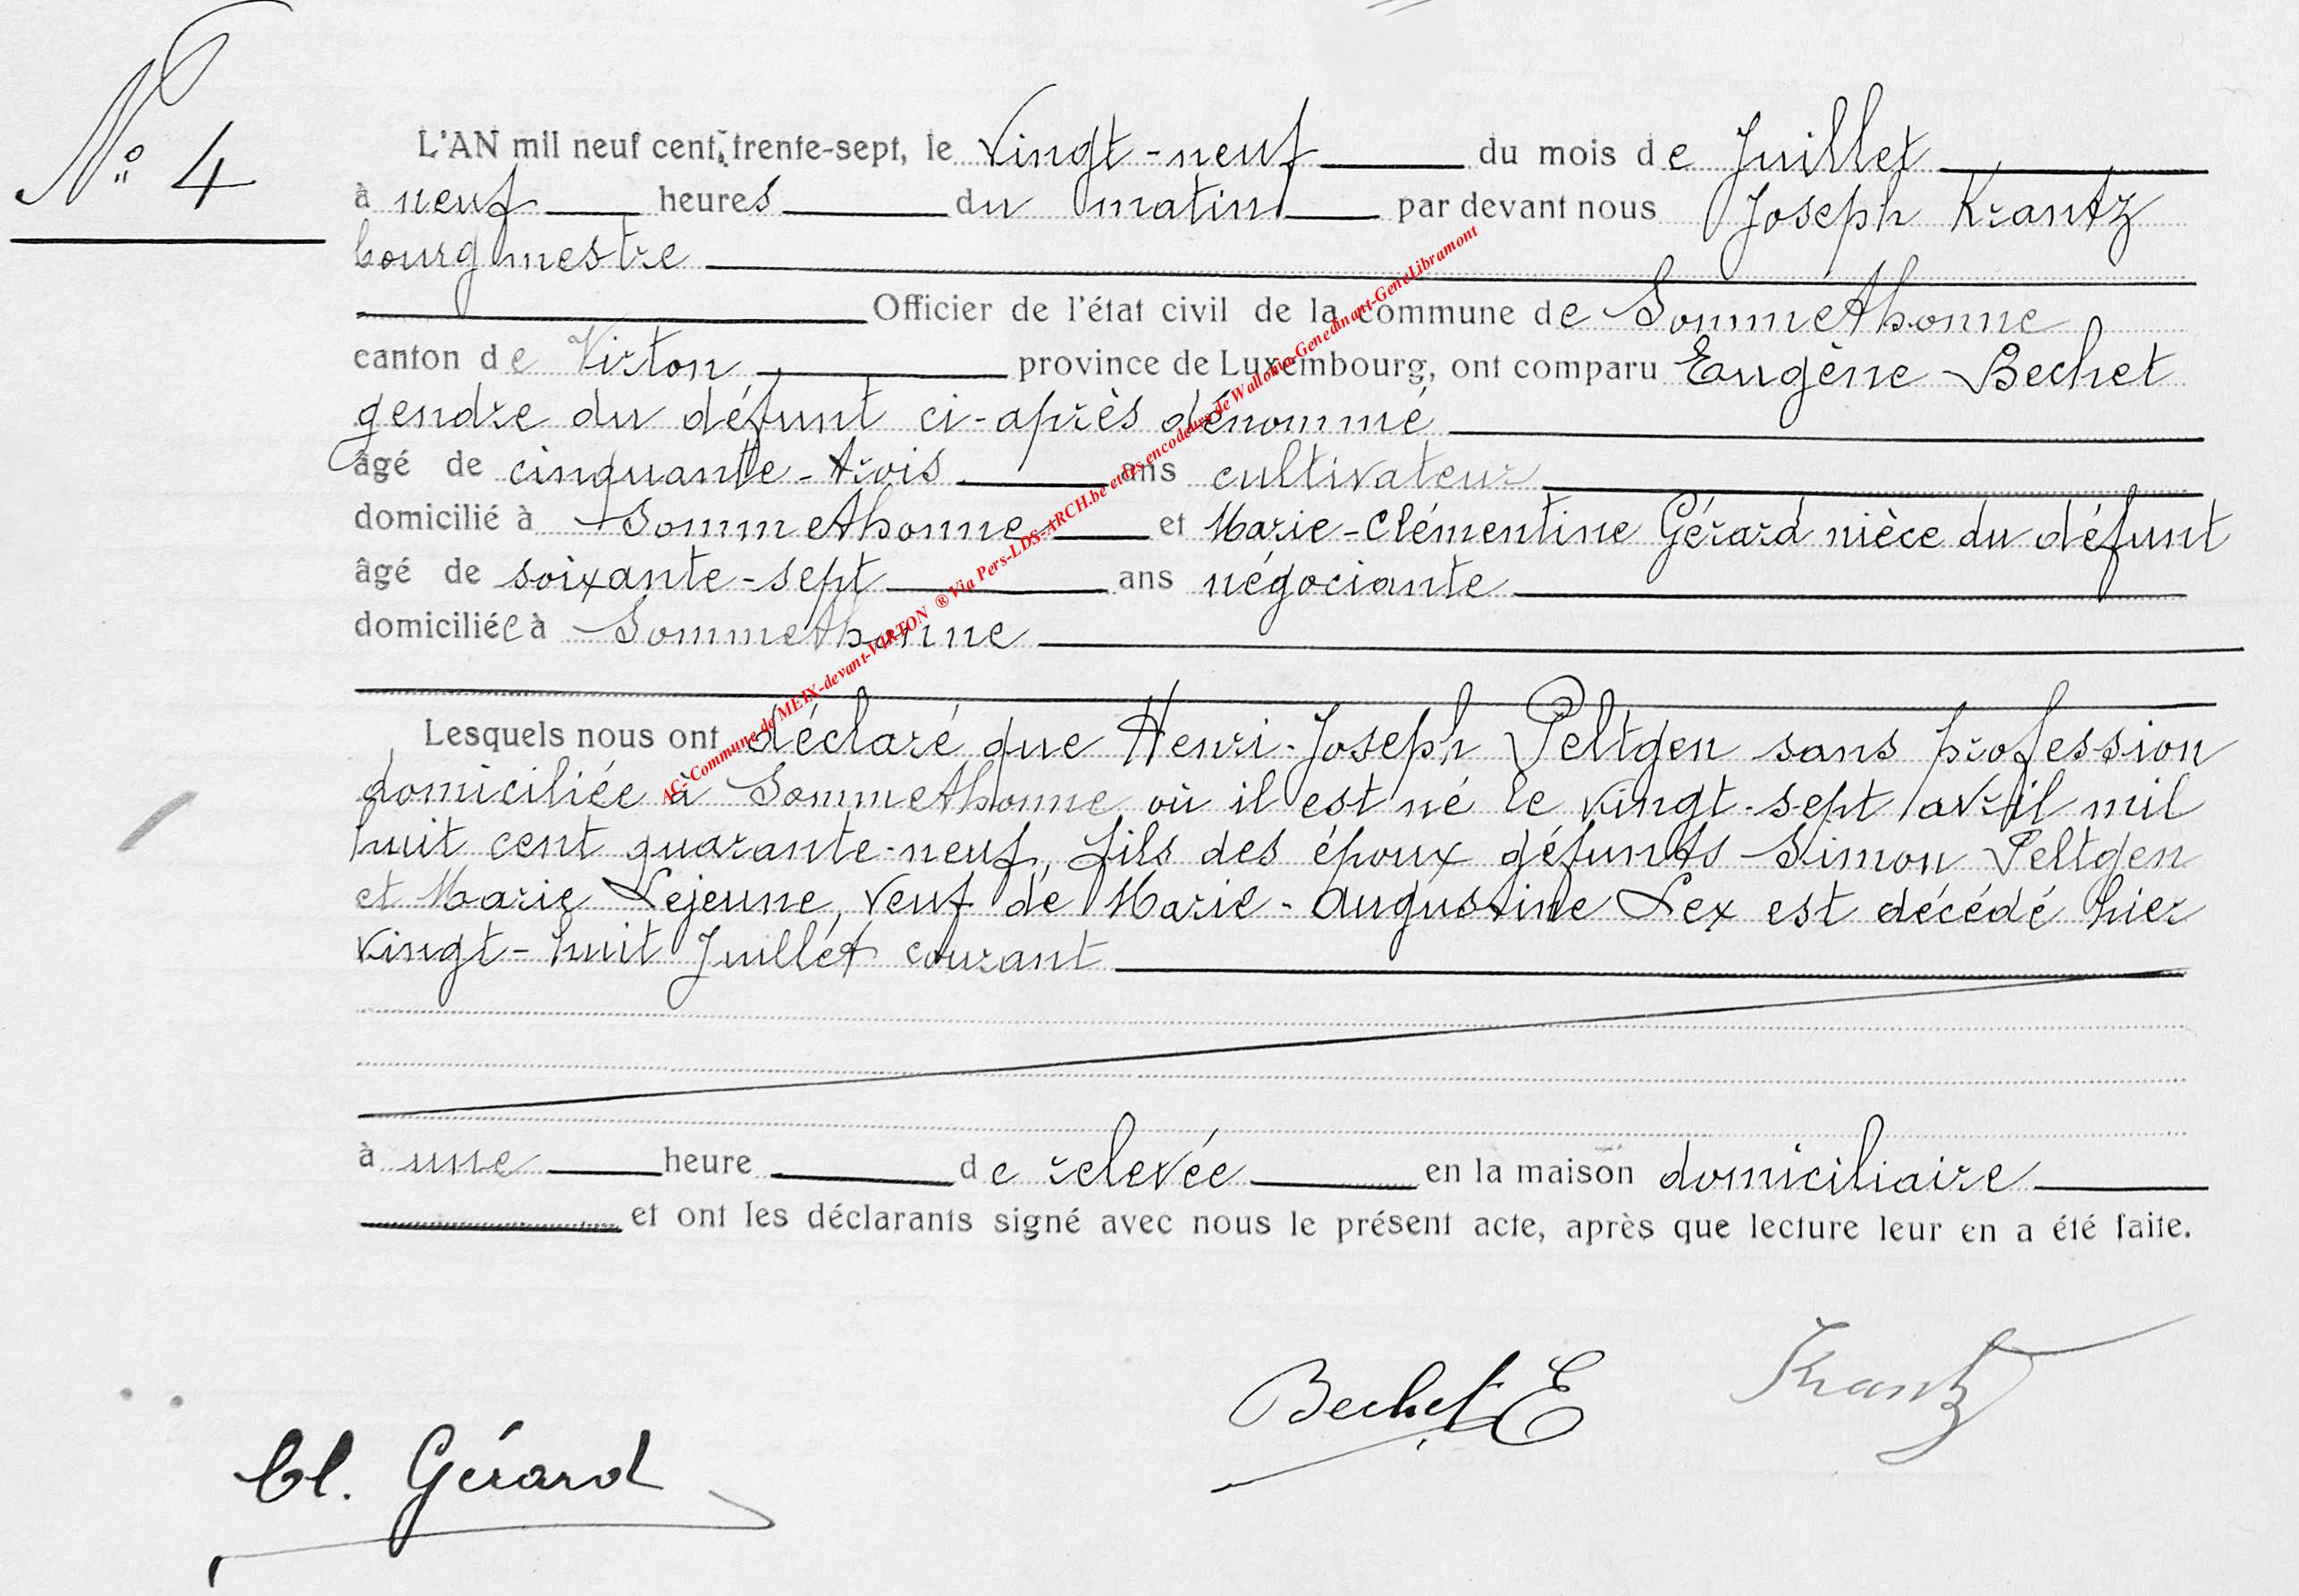 N° 4
L'AN mil neuf cent trente-sept, le vingt-neuf du mois de Juillet
à neuf heures du matin par devant nous Joseph Krantz
bourgmestre
Officier de l'état civil de la commune de Sommethonne
canton de Virton province de Luxembourg, ont comparu Eugène Bechet
gendre du défunt ci-après dénommé
âgé de cinquante-trois ans cultivateur
domicilié à Sommethonne et Marie-Clémentine Gérard nièce du défunt
âgé de soixante-sept ans négociante
domiciliée à Sommethonne
Lesquels nous ont déclaré que Henri-Joseph Peltgen sans profession
domiciliée à Sommethonne où il est né le vingt-sept avril mil
huit cent quarante-neuf, fils des époux défunts Simon Peltgen
et Marie Lejeune, veuf de Marie-Augustine Lex est décédé hier
vingt-huit Juillet courant
à une heure de relevée en la maison domiciliaire
et ont les déclarants signé avec nous le présent acte, après que lecture leur en a été faite.
Bechet E
Krantz
Cl. Gérard
AC-Commune de MEIX-devant-VIRTON ® Via Pers-LDS-ARCH.be et les encodeurs de Wallonia-Genedinant-GeneLibramont